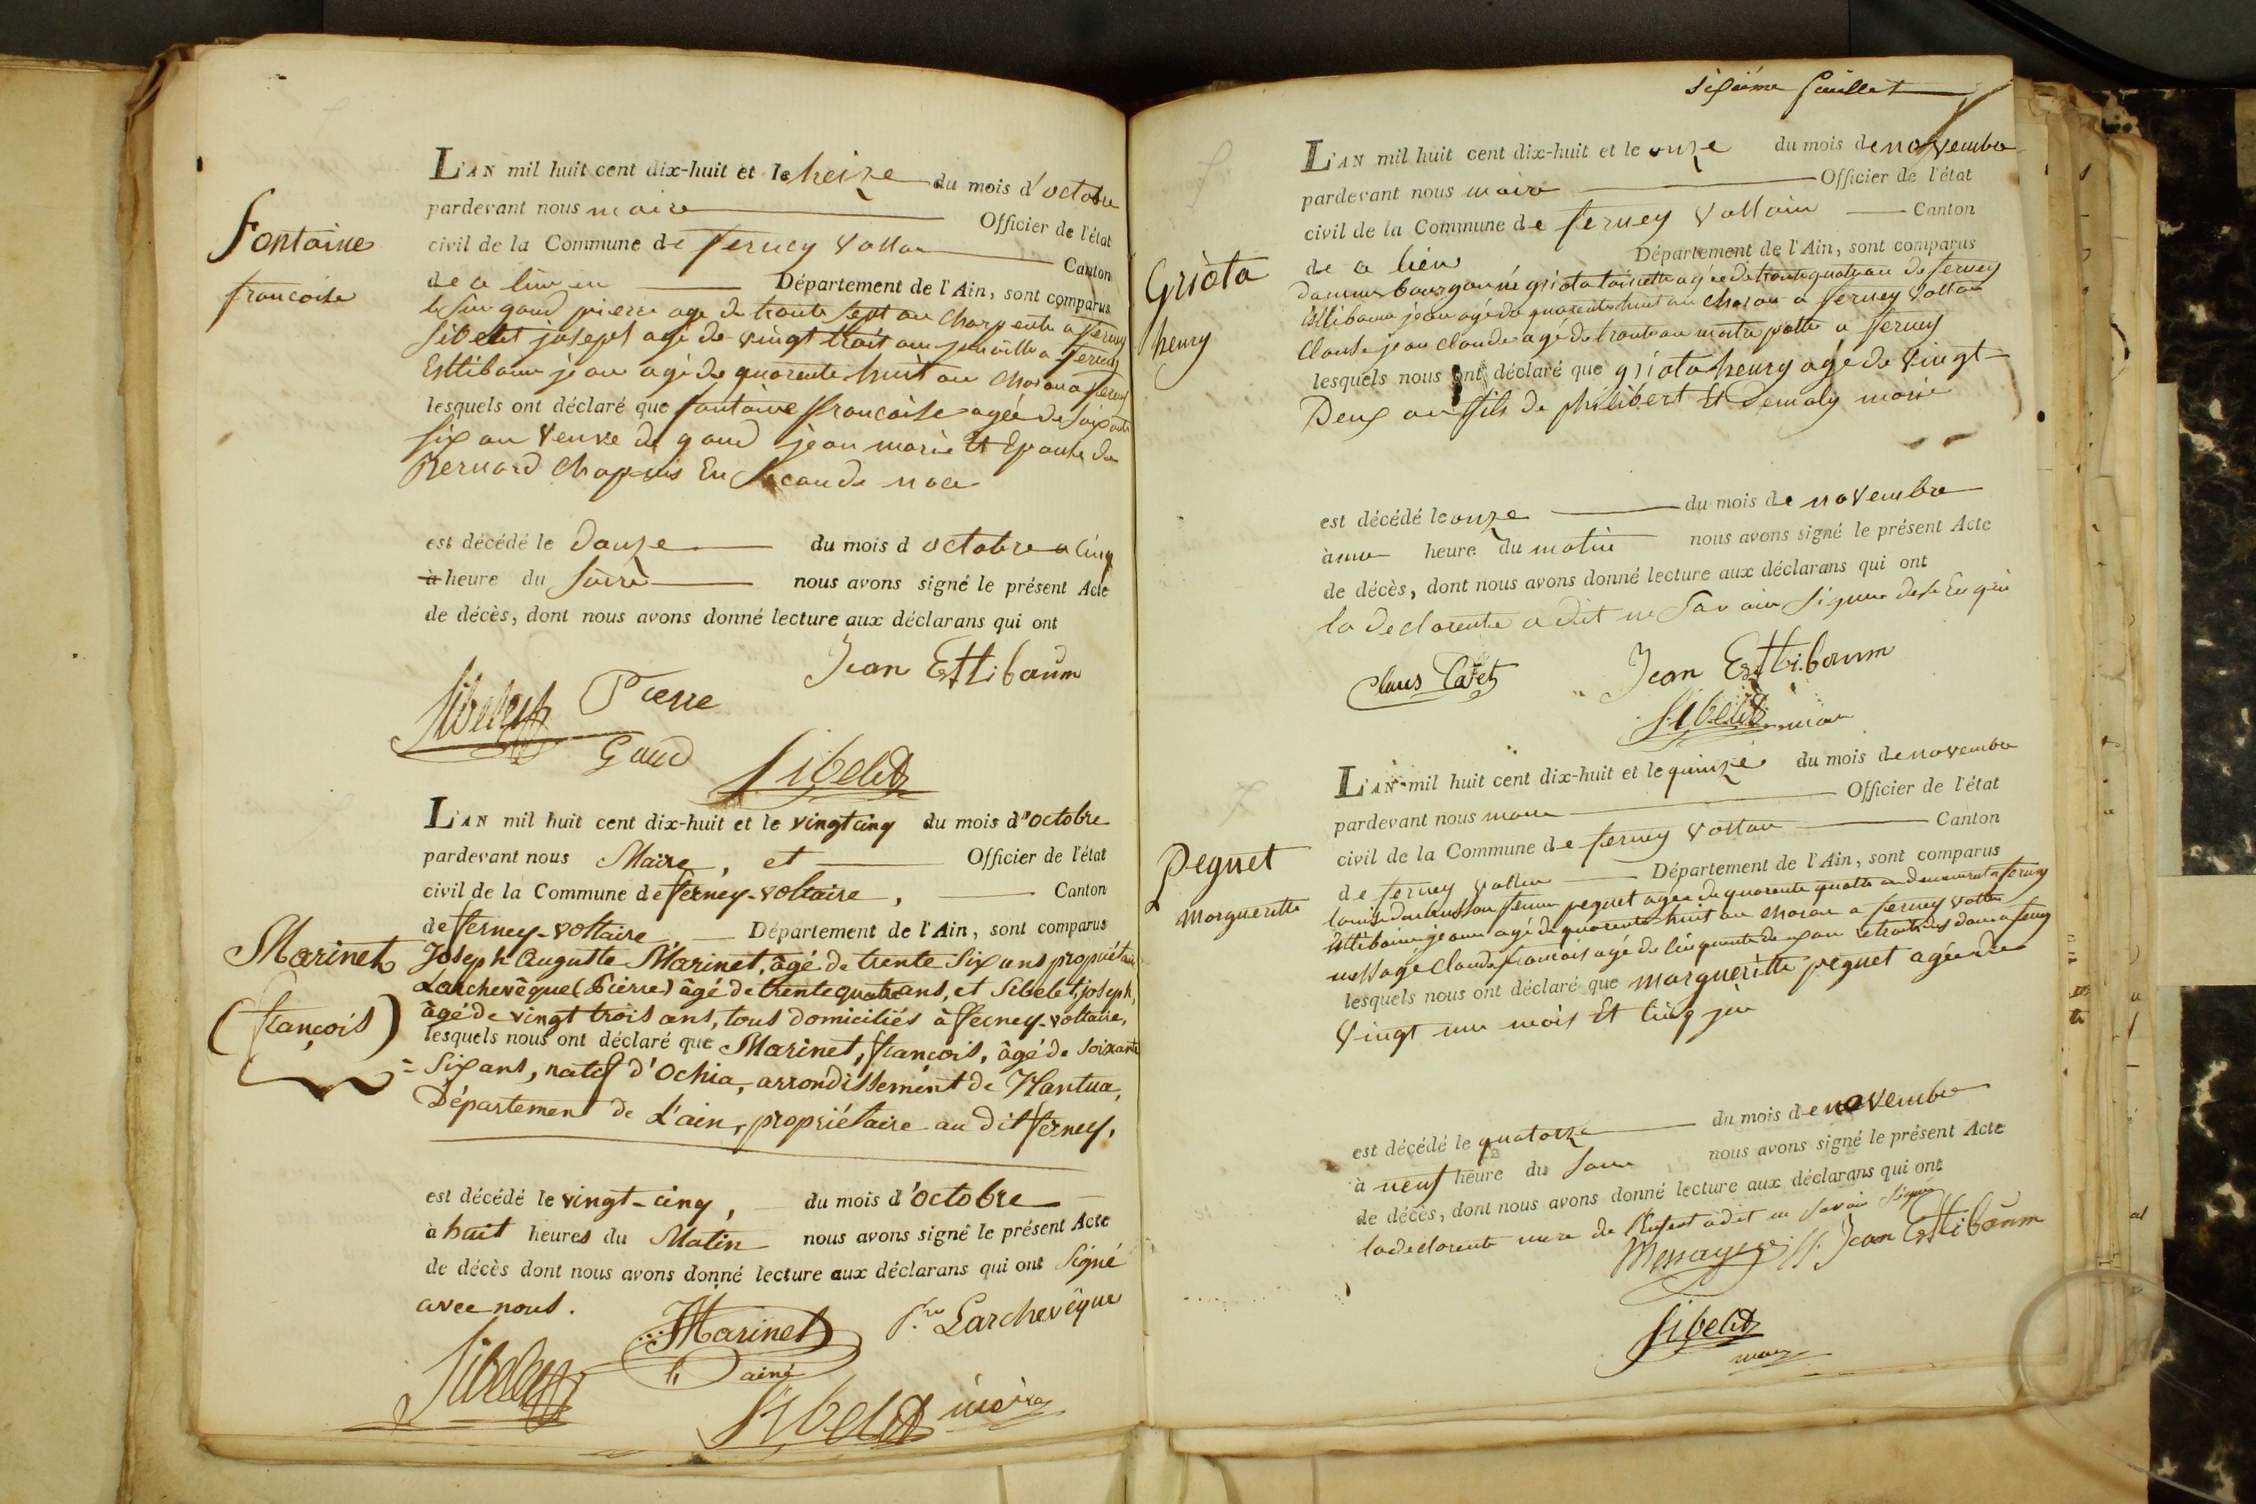 Fontaine
francoise
L'AN mil huit cent dix-huit et le treize du mois d'octobre
pardevant nous maire Officier de l'état
civil de la Commune de ferney Canton
de Département de l'Ain, sont comparus
le Sieur gaud pierre age de trente Sept an a ferney
Sibelet joseph agé de vingt trois an a ferney
Esttibaum jean agé de quarente huit an a ferney
lesquels ont déclaré que fontaine francoise agée de Soixante
Six an veuve de gaud jean marie Et Epouse de
Bernard Chapuis En Seconde noce
est décédé le douze du mois d octobre a Cinq
à heure du Soire nous avons signé le présent Acte
de décès, dont nous avons donné lecture aux déclarans qui ont
Jean Esttibaum
Sibelet Pierre
Gaud
Sibelet
Marinet
(françois)
L'AN mil huit cent dix-huit et le vingt cinq du mois d'octobre
pardevant nous Maire, et Officier de l'état
civil de la Commune de ferney-voltaire, Canton
de ferney-voltaire Département de l'Ain, sont comparus
Joseph Auguste Marinet, âgé de trente Six ans propriétaire
Larchevêque (Pierre) âgé de trente quatre ans, et Sibelet, joseph,
âgé de vingt trois ans, tous domiciliés à ferney-voltaire,
lesquels nous ont déclaré que Marinet, françois, âgé de soixante
= Six ans, natif d'Ochia, arrondissement de Nantua,
Département de L'ain, propriétaire au dit ferney.
est décédé le vingt-cinq, du mois d'octobre
à huit heures du Matin nous avons signé le présent Acte
de décès dont nous avons donné lecture aux déclarans qui ont Signé
avec nous.
Marinet P.re Larchevêque
Sibelet ainé
Sibelet maire
Sixième feuillet
Griota
henry
L'AN mil huit cent dix-huit et le onze du mois de novembre
pardevant nous maire Officier de l'état
civil de la Commune de ferney Canton
de Département de l'Ain, sont comparus
griota agée de trente quatre an de ferney
Esttibaum jean agé de quarente huit an a ferney
Claude jean claude agé de trente an a ferney
lesquels nous ont déclaré que griota henry agé de vingt
Deux an fils de philibert Et Demaly marie
est décédé le onze du mois de novembre
à une heure du matin nous avons signé le présent Acte
de décès, dont nous avons donné lecture aux déclarans qui ont
la declarente a dit ne Savoir Signer
Jean Esttibaum
Sibelet maire
Peguet
Margueritte
L'AN mil huit cent dix-huit et le quinze du mois de novembre
pardevant nous maire Officier de l'état
civil de la Commune de ferney Canton
de ferney Département de l'Ain, sont comparus
femme peguet agée de quarente quatre an demeurent a ferney
Esttibaum jean agé de quarente huit an a ferney
message Claude francois agé de Cinquente
lesquels nous ont déclaré que margueritte peguet agée de
Vingt un mois Et Cinq jour
est décédé le quatorze du mois de novembre
à neuf heure du Soire nous avons signé le présent Acte
de décès, dont nous avons donné lecture aux déclarans qui ont
la declarente mere de l'enfent a dit ne Savoir Signer
Messager Jean Esttibaum
Sibelet
maire